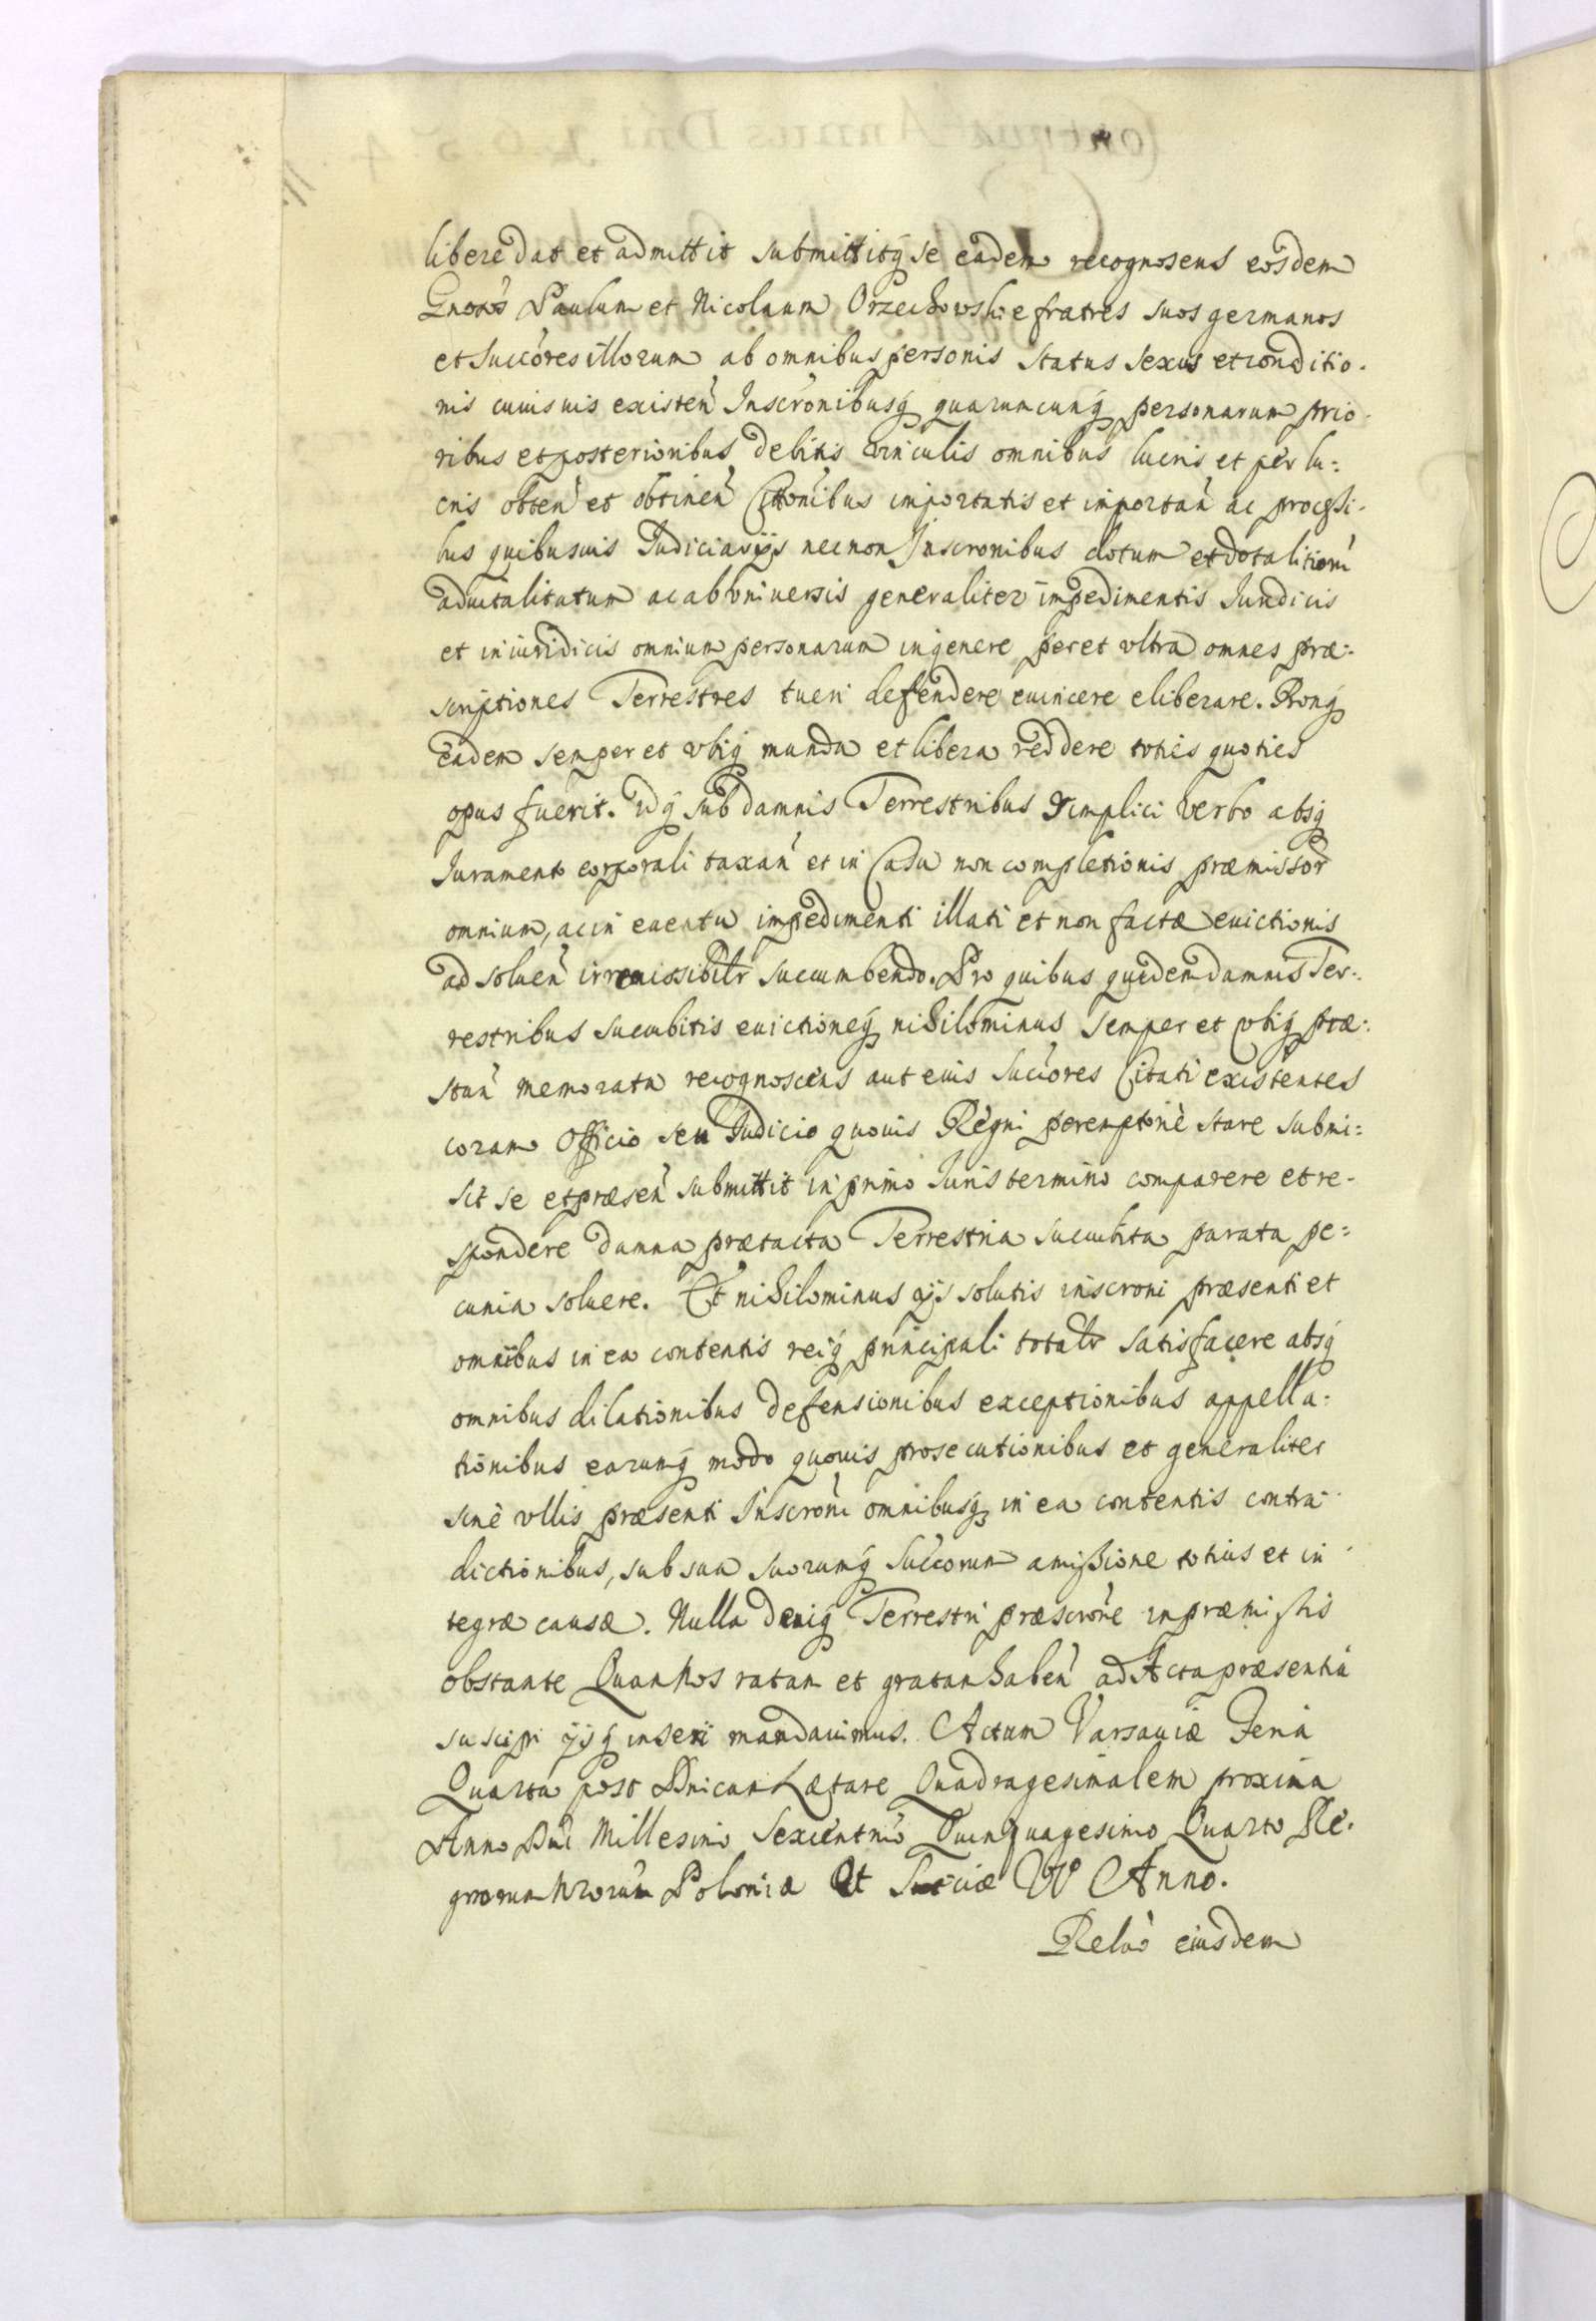 libere dat et admittit submittitq3 se eadem recognoscens eosdem
Gnosos Paulum et Nicolaum Orzechowskie fratres suos germanos
et Succóres illorum ab omnibus personis status sexus et conditio-
nis cuiusuis existen Inscronibusq3 quaruncunq3 personarum prio-
ribus et posterioribus debitis vinculis omnibus lucris et per lu:
cris obten et obtinen Citonibus importatis et importan ac processi-
bus quibusuis Iudiciarijs necnon Inscronibus dotum et dotalitiorum
aduitalitatum ac ab vniuersis generaliter impedimentis Iuridicis
et iniuridicis omnium personarum in genere per et vltra omnes præ:
scriptiones Terrestres tueri defendere euincere eliberare. Bonaq3
eadem semper et vbiq3 munda et libera reddere toties quoties
opus fuerit. Idq3 sub damnis Terrestribus simplici verbo absq3
Iuramento corporali taxan et in Casu non completionis præmissor
omnium, ac in euentu impedimenti illati et non factæ euictionis
ad soluen irremissibilr succumbendo. Pro quibus quidem damnis Ter:
restribus succubitis euictioneq3 nihilominus semper et vbiq3 præ:
stan memorata recognoscens aut eius Succores Citati existentes
coram Officio seu Iudicio quouis Regni peremptoriè stare submi:
sit se et præsen submittit in primo Iuris termino comparere et re-
spondere damna prætacta Terrestria succubita parata pe:
cunia soluere. Et nihilominus ijs solutis inscroni præsenti et
omnibus in ea contentis reiq3 principali totalr satisfacere absq3
omnibus dilationibus defensionibus exceptionibus appella:
tionibus earumq3 modo quouis prosecutionibus et generaliter
sinè vllis præsenti Inscroni omnibusq3 in ea contentis contra-
dictionibus, sub sua suorumq3 Succorum amissione totius et in
tegræ causæ. Nulla deniq3 Terrestri præscrone in præmissis
obstante Quam Nos ratam et gratam haben ad Acta præsentia
suscipi ijsq3 inseri mandauimus. Actum Varsauiæ Feria
Quarta post Dnicam Lætare Quadragesimalem proxima
Anno Dni Millesimo Sexcentmo Quinquagesimo Quarto Re-
gnorum Nrorum Poloniæ Et Sueciæ VI Anno.
Relao eiusdem